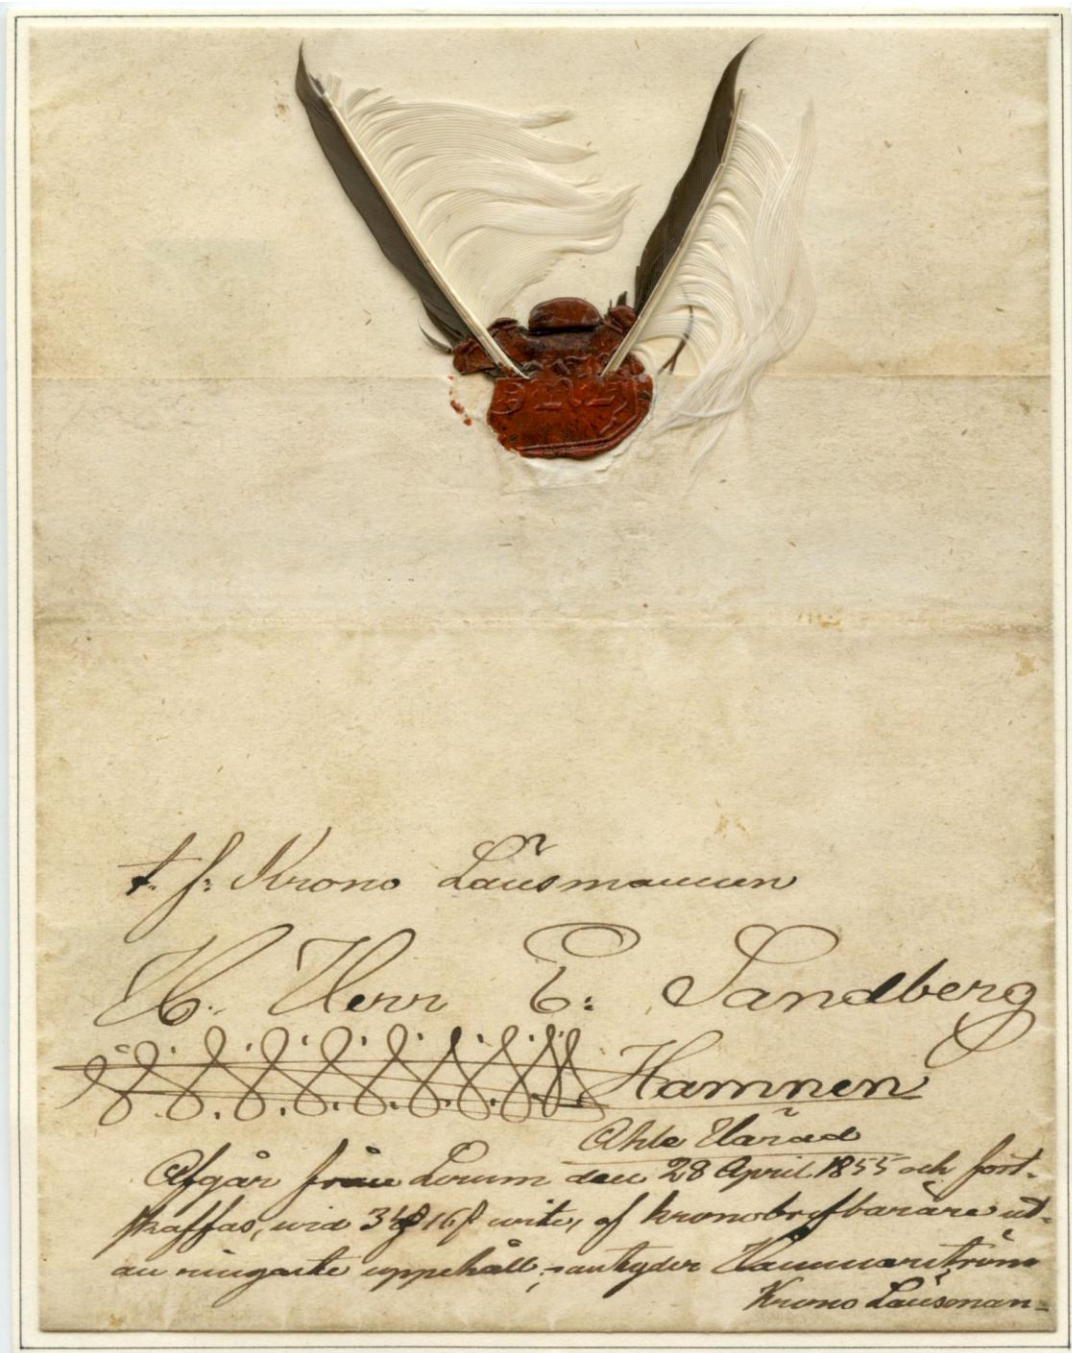 t. f: Krono Länsmannen
H. Herr E: Sandberg
Hamnen
Ahle Härad
Afgår från Lerum den 28 April 1855 och fort-
skaffas, wid 3 16 wite, af kronobrefbärare ut-
an ringaste uppehåll; antyder Hammarström
Krono Länsman